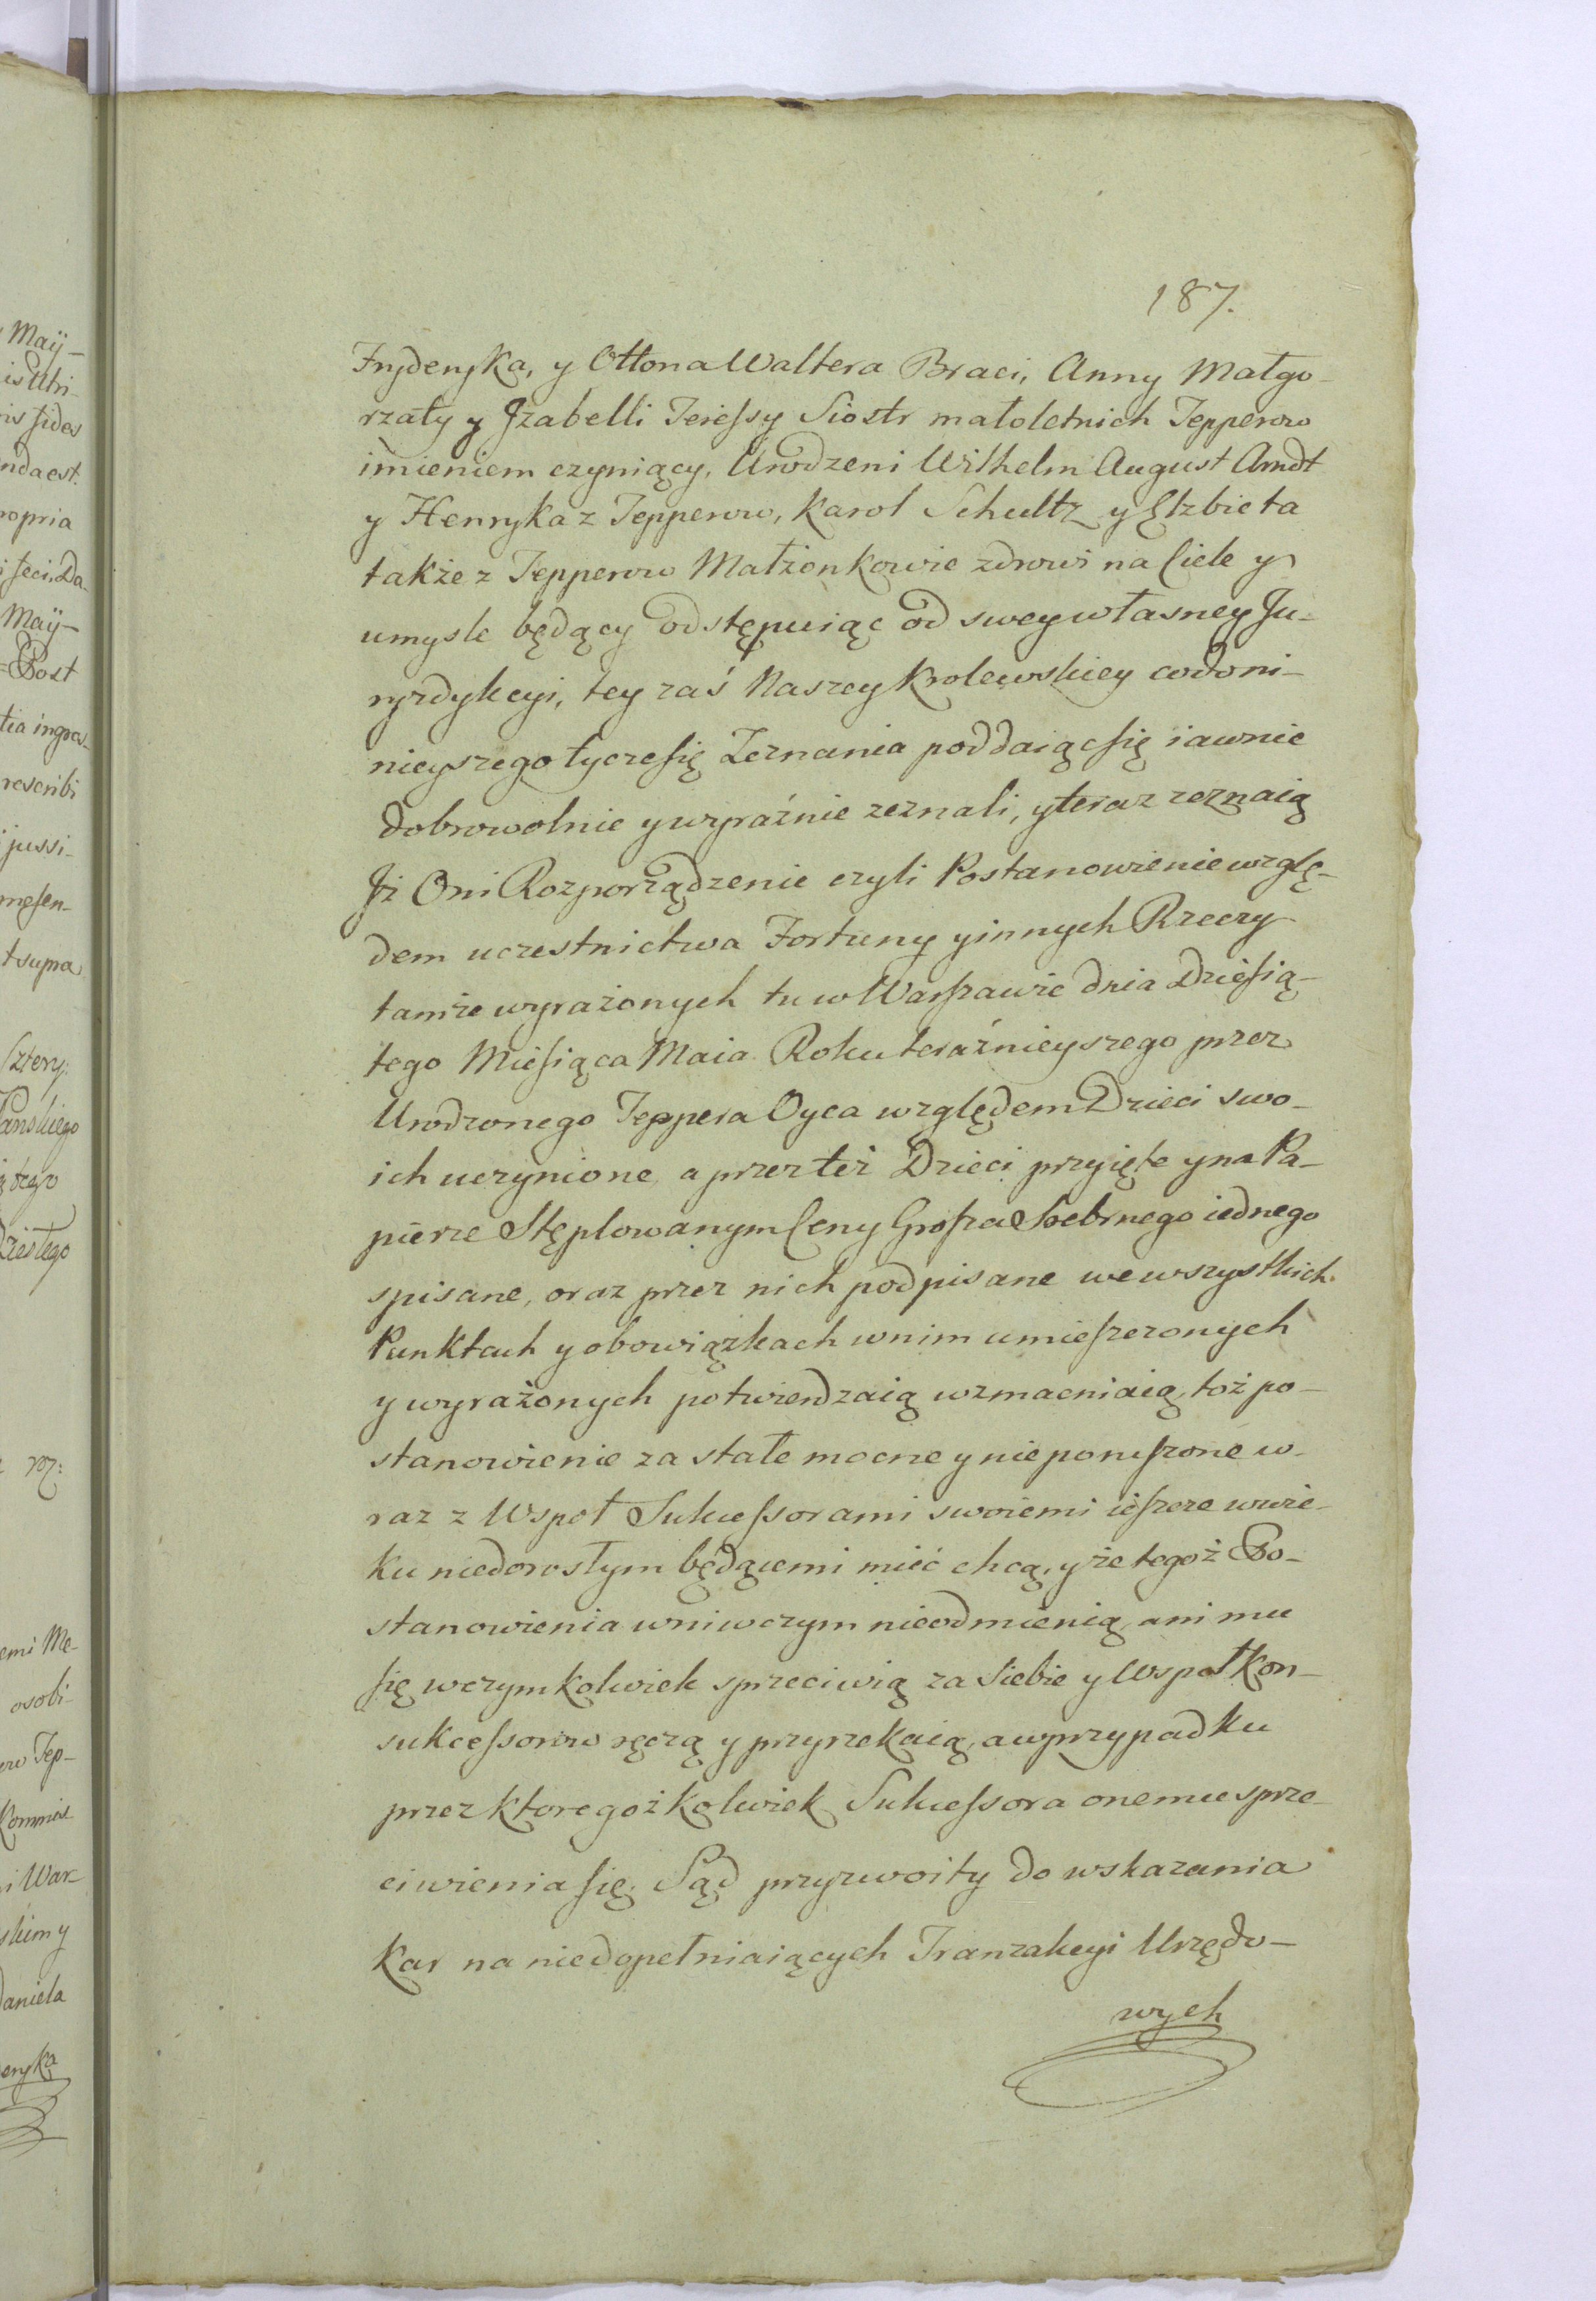 187.
Fryderyka, y Ottona Waltera Braci, Anny Małgo-
rzaty y Jzabelli Teressy Siostr małoletnich Tepperow
imieniem czyniący, Urodzeni Wilhelm August Arndt
y Henryka z Tepperow, Karol Schultz y Elzbieta
także z Tepperow Małżonkowie zdrowi na Ciele y
umysle będący odstępuiąc od swey własney Ju-
ryzdykcyi, tey zaś Naszey Krolewskiey co do ni-
nieyszego tycze się Zeznania poddaiąc się iawnie
dobrowolnie y wyraźnie zeznali, y teraz zeznaią
Jż Oni Rozporządzenie czyli Postanowienie wzglę-
dem uczestnictwa Fortuny y innych Rzeczy
tamże wyrażonych tu w Warszawie dnia Dziesią-
tego Miesiąca Maia Roku teraźnieyszego przez
Urodzonego Teppera Oyca względem Dzieci swo-
ich uczynione, a przez też Dzieci przyięte y na Pa-
pierze Stęplowanym Ceny Grosza Srebrnego iednego
spisane, oraz przez nich podpisane we wszystkich
Punktach y obowiązkach w nim umieszczonych
y wyrażonych potwierdzaią wzmacniaią, toż po-
stanowienie za stałe mocne y nieporuszone w-
raz z Wspoł Sukcessorami swoiemi ieszcze w wie-
ku niedorosłym będącemi mieć chcą, y że tegoż Po-
stanowienia w niwczym nieodmienią, ani mu
się w czymkolwiek sprzeciwią za Siebie y Wspoł Kon-
sukcessorow ręczą y przyrzekaią, a w przypadku
przez ktoregożkolwiek Sukcessora onemu sprze-
ciwienia się, Sąd przyzwoity do wskazania
Kar na niedopełniaiących Tranzakcyi Urzędo-
wych
Maÿ-
ndaest.
ropria
Maÿ-
Post
rescribi
jussi-
tsupra
osobi-
i War-
skim y
Daniela
eryka